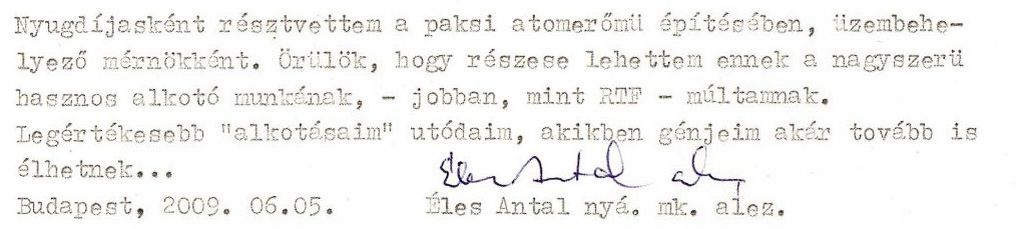 Nyugdíjasként résztvettem a paksi atomerőmű építésében, üzembehe-
lyező mérnökként. Örülök, hogy részese lehettem ennek a nagyszerü
hasznos alkotó munkának, - jobban, mint RTF - múltamnak.
Legértékesebb "alkotásaim" utódaim, akikben génjeim akár tovább is
élhetnek...
Éles Antal alez
Budapest, 2009. 06.05. Éles Antal nyá. mk. alez.